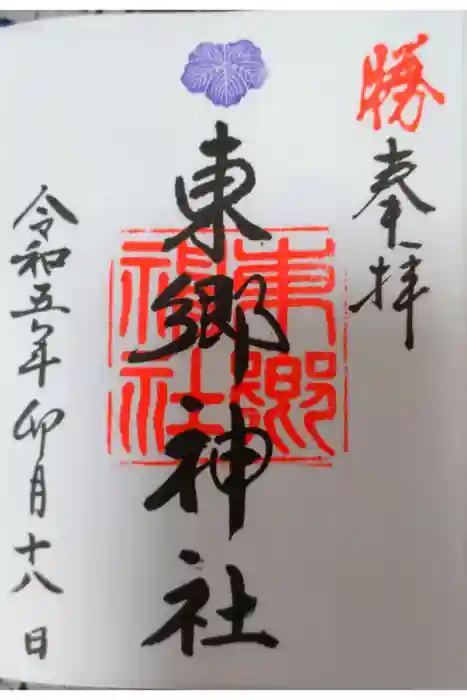 勝
奉拝
東郷神社
東郷
神社
令和五年卯月十八日